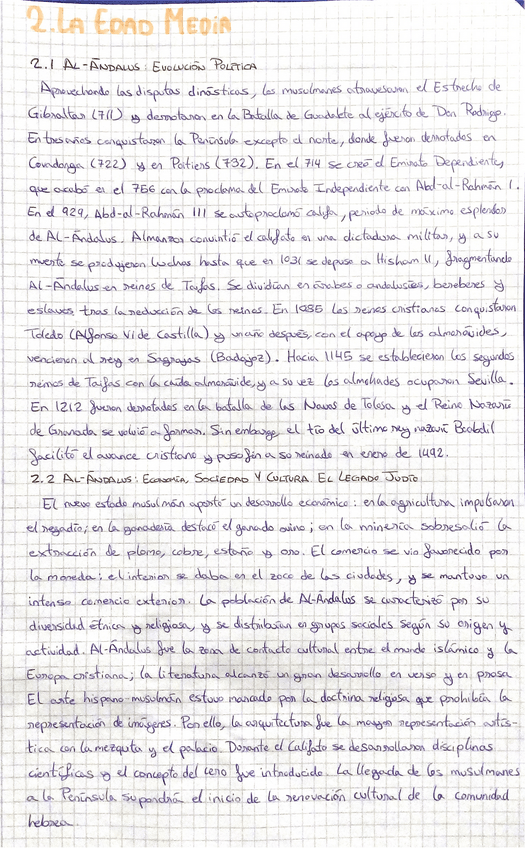 2. LA EDAD MEDIA
2.1 AL-ÁNDALUS: EVOLUCIÓN POLÍTICA
Aprovechando las disputas dinásticas, los musulmanes atravesaron el Estrecho de
Gibraltar (711) y derrotaron en la Batalla de Guadalete al ejército de Don Rodrigo.
En tres años conquistaron la Península excepto el norte, donde fueron derrotados en
Covadonga (722) y en Poitiers (732). En el 714 se creó el Emirato Dependiente,
que acabó en el 756 con la proclama del Emirato Independiente con Abd-al-Rahmán I.
En el 929, Abd-al-Rahmán III se autoproclamó califa, periodo de máximo esplendor
de Al-Ándalus. Almanzor convirtió el califato en una dictadura militar, y a su
muerte se produjeron luchas hasta que en 1031 se depuso a Hisham II, fragmentando
Al-Ándalus en reinos de Taifas. Se dividían en árabes o andalusíes, bereberes y
eslavos tras la reducción de los reinos. En 1085 los reinos cristianos conquistaron
Toledo (Alfonso VI de Castilla) y un año después, con el apoyo de los almorávides,
vencieron al rey en Sagrajas (Badajoz). Hacia 1145 se establecieron los segundos
reinos de Taifas con la caída almorávide, y a su vez los almohades ocuparon Sevilla.
En 1212 fueron derrotados en la batalla de las Navas de Tolosa y el Reino Nazarí
de Granada se volvió a formar. Sin embargo, el tío del último rey nazarí Boabdil
facilitó el avance cristiano y puso fin a so reinado en enero de 1492.
2.2 AL-ÁNDALUS: ECONOMÍA, SOCIEDAD Y CULTURA. EL LEGADO JUDÍO
El nuevo estado musulmán aportó un desarrollo económico: en la agricultura impulsaron
el regadío; en la ganadería destacó el ganado ovino; en la minería sobresalió la
extracción de plomo, cobre, estaño y oro. El comercio se vio favorecido por
la moneda: el interior se daba en el zoco de las ciudades, y se mantuvo un
intenso comercio exterior. La población de Al-Ándalus se caracterizó por su
diversidad étnica y religiosa, y se distribuían en grupos sociales según su origen y
actividad. Al-Ándalus fue la zona de contacto cultural entre el mundo islámico y la
Europa cristiana; la literatura alcanzó un gran desarrollo en verso y en prosa
El arte hispano musulmán estuvo marcado por la doctrina religiosa que prohibía la
representación de imágenes. Por ello, la arquitectura fue la mayor representación artís-
tica con la mezquita y el palacio. Durante el Califato se desarrollaron disciplinas
científicas y el concepto del cero fue introducido. La llegada de los musulmanes
a la Península supondría el inicio de la renovación cultural de la comunidad
hebrea.